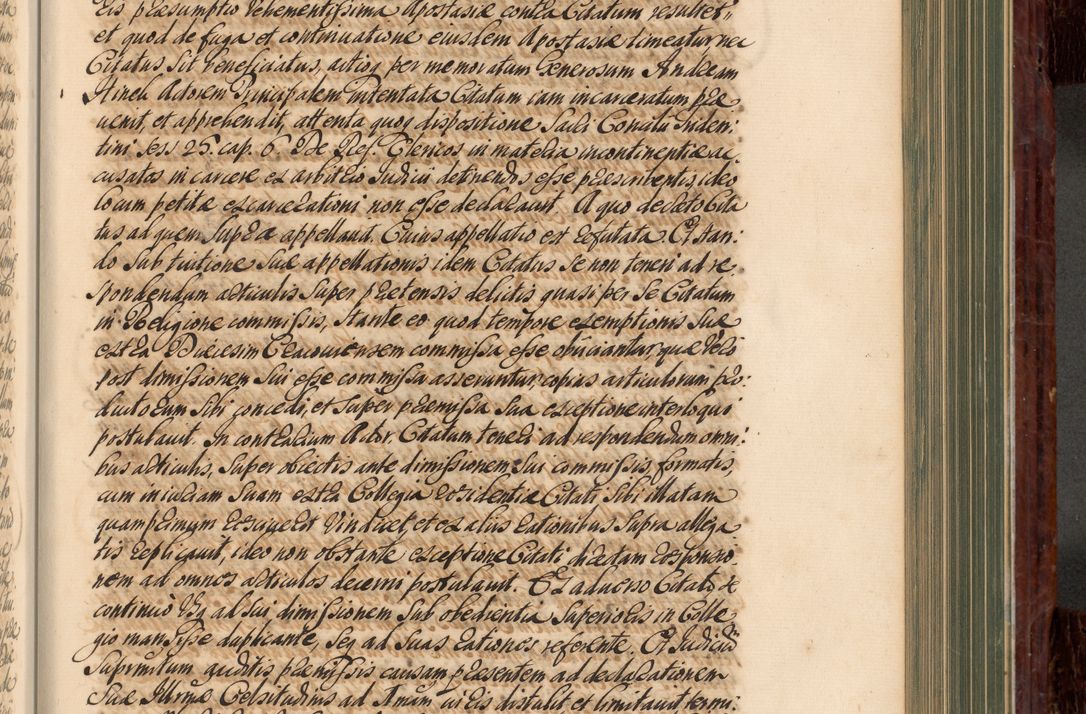 Eis præsumptio vehementissima Apostasiæ contra Citatum resultet,
et quod de fuga et continuatione eiusdem Apostasiæ timeatur nec
Citatus sit beneficiatus, actioq per memoratum Generosum Andream
Actorem Principalem intentata Citatum iam incarceratum præ
uenit, et apprehendit, attenta quoq dispositione Sacri Concilii Triden:
tini sess 25. cap. 6. De Ref. Clericos in materia incontinentiæ ac,
cusatos in carcere ex arbitrio Iudicii detinendos esse præscribentis, ideo
locum petitæ excarcerationi non esse declarauit. A quo decreto Cita
tus ad quem supra appellauit. Cuius appellatio est refutata. Et stan:
do sub tuitione suæ appellationis idem Citatus se non teneri ad re
spondendum articulis super prætensis delictis quasi per se Citatum
in Religione commissis, stante eo quod tempore exemptionis suæ
extra Diæcesim Cracouiensem commissa esse obiiciantur, quæ vero
post dimissionem sui esse commissa asseruntur, copias articulorum pro:
ductorum sibi concedi, et super præmissa sua exceptione interloqui
postulauit. In contrarium Actor. Citatum teneri ad respondendum omni:
bus articulis, super obiectis ante dimissionem sui commissis, formatis,
cum iniuriam suam extra Collegia residentiæ Citati sibi illatam
quam primum resciuerit vindicet, et ex aliis rationibus supra allega
tis replicauit, ideo non obstante exceptione Citati dictam responsio
nem ad omnes articulos decerni postulauit. Ex aduerso Citatus
continuo usq ad sui dimissionem sub obedientia Superioris in Colle
gio mansisse duplicante, seq ad suas rationes referente. Et Iudicium
Suprmitum auditis præmissis causam præsentem ad declarationem
Suæ Illrmæ Celsitudinis ad Amum in Eis distulit et limitauit termi: